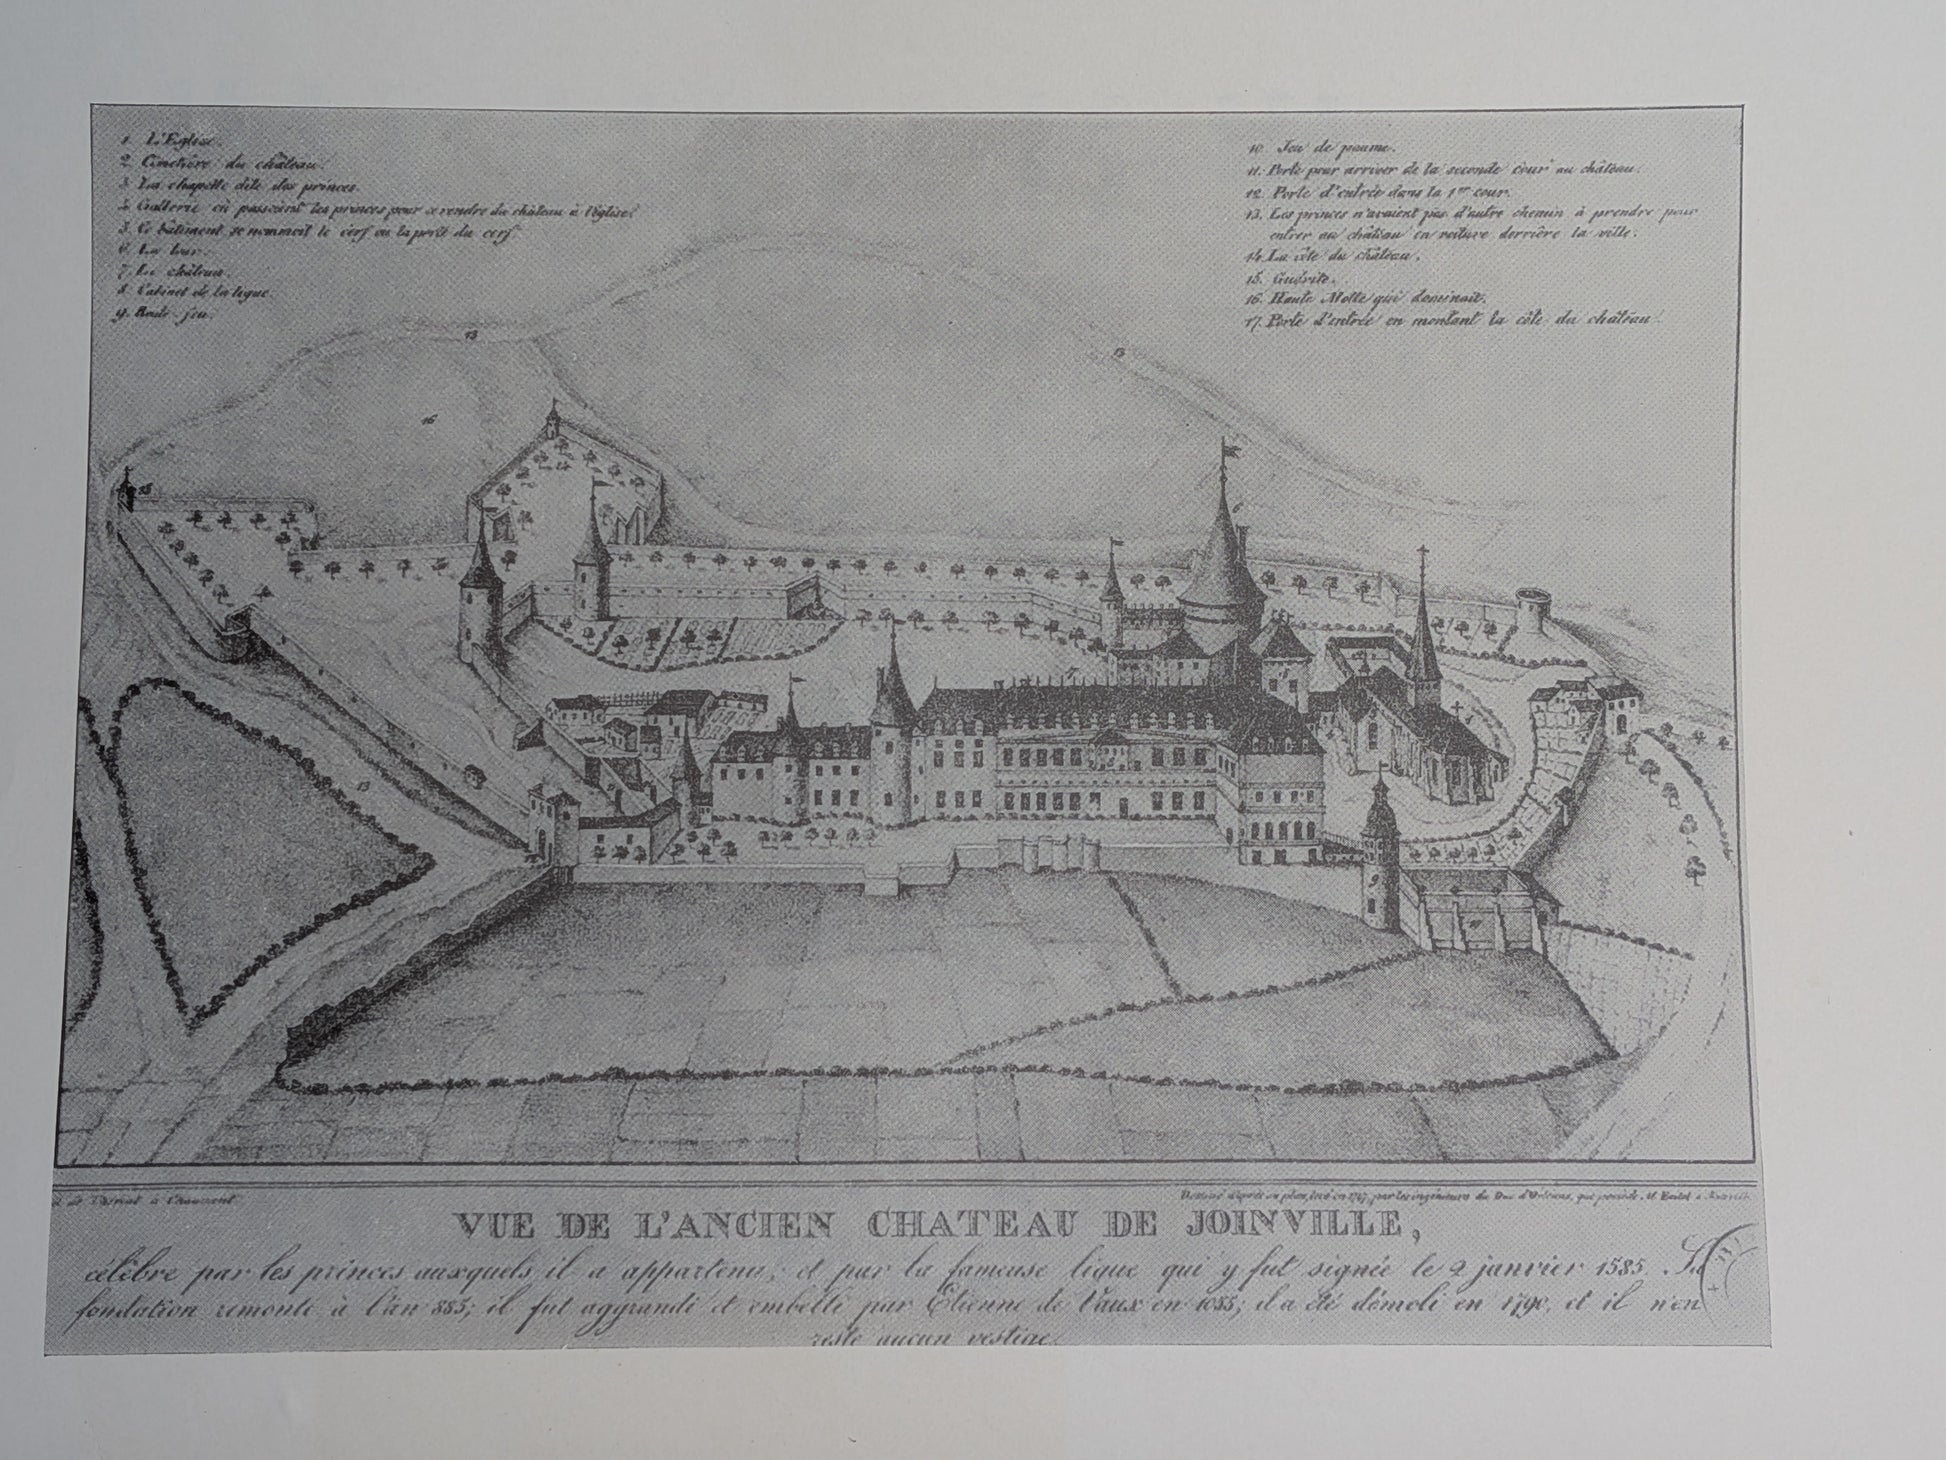 1. L'Eglise.
2. Cimetière du château.
3. La chapelle dite des princes.
4. Gallerie où passoient les princes pour se rendre du château à l'église.
5. Ce bâtiment se nommoit le cerf ou la porte du cerf.
6. La tour.
7. Le château.
8. Cabinet de la ligue.
9. Boute-feu.
10. Jeu de paume.
11. Porte pour arriver de la seconde cour au château.
12. Porte d'entrée dans la 1ere cour.
13. Les princes n'avaient pas d'autre chemin à prendre pour
entrer au château en voiture derrière la ville.
14. La côte du château.
15. Guérite.
16. Haute Motte qui dominait.
17. Porte d'entrée en montant la côte du château.
13
13
16
15
6
7
13
à Chaumont
Dessiné d'après un plan, levé en 1767, par les ingénieurs du Duc d'Orléans, que possède M.
VUE DE L'ANCIEN CHATEAU DE JOINVILLE,
célèbre par les princes auxquels il a appartenu; et par la fameuse ligue qui y fut signée le 2 janvier 1585. Sa
fondation remonte à l'an 885; il fut aggrandi et embelli par Etienne de Vaux en 1055; il a été démoli en 1790, et il n'en
reste aucun vestige.